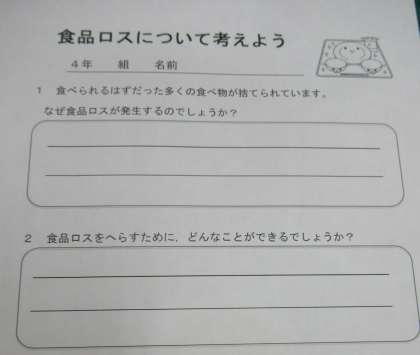 食品ロスについて考えよう
4年　組　名前
1　食べられるはずだった多くの食べ物が捨てられています。
なぜ食品ロスが発生するのでしょうか？
2　食品ロスをへらすために，どんなことができるでしょうか？